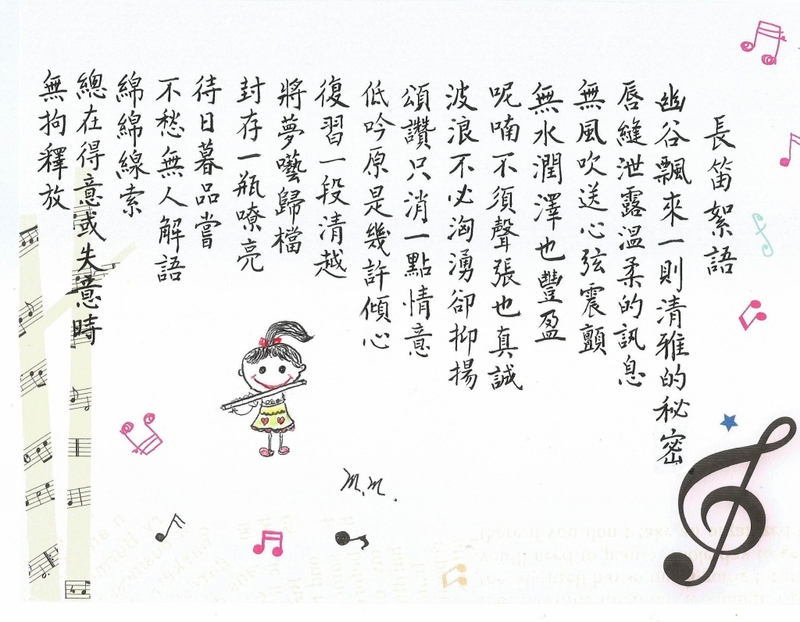 長笛絮語
幽谷飄來一則清雅的秘密
唇縫泄露溫柔的訊息
無風吹送心弦震顫
無水潤澤也豐盈
呢喃不須聲張也真誠
波浪不必洶湧卻抑揚
頌讚只消一點情意
低吟原是幾許傾心
復習一段清越
將夢囈歸檔
封存一瓶嘹亮
待日暮品嘗
不愁無人解語
綿綿線索
總在得意或失意時
無拘釋放
m.m.